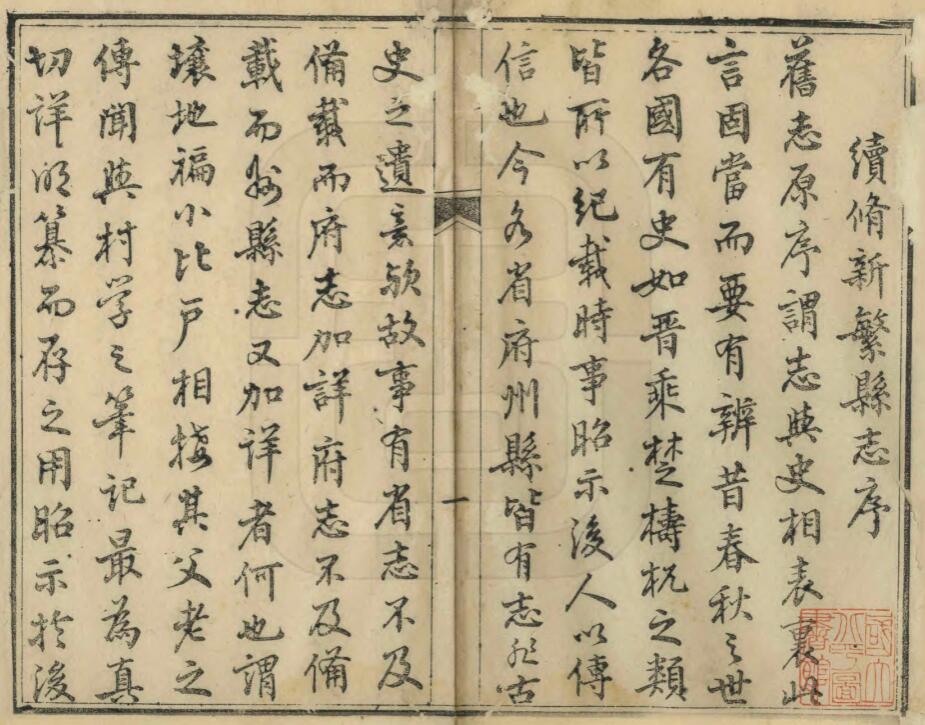 續脩新繁縣志序
舊志原序謂志與史相表裏此
言固當而要有辨昔春秋之世
各國有史如晋乘楚檮杌之類
皆所以紀載時事昭示後人以傳
信也今各省府州縣皆有志即古
一
史之遺意歟故事有省志不及
備載而府志加詳府志不及備
載而州縣志又加详者何也謂
壤地褊小比戶相接其父老之
傳聞與村学之筆记最為真
切详明纂而存之用昭示於後